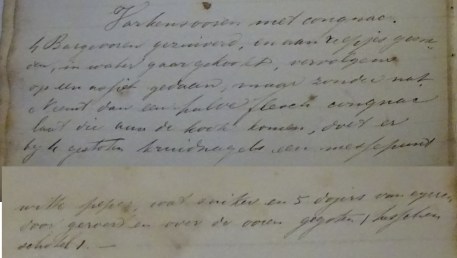 Varkensooren met congnac.
4 Bargeooren gezuiverd, en aan reepjes gesne-
den, in water gaar gekookt, vervolgens
op een asjet gedaan, maar zonder nat.
Neemt dan een halve flesch congnac
laat die aan de kook komen, doet er
bij 4 gestoten kruidnagels een messepunt
witte peper, wat suiker en 5 dojers van eyeren
door geroerd en over de ooren gegoten (
schotel). —